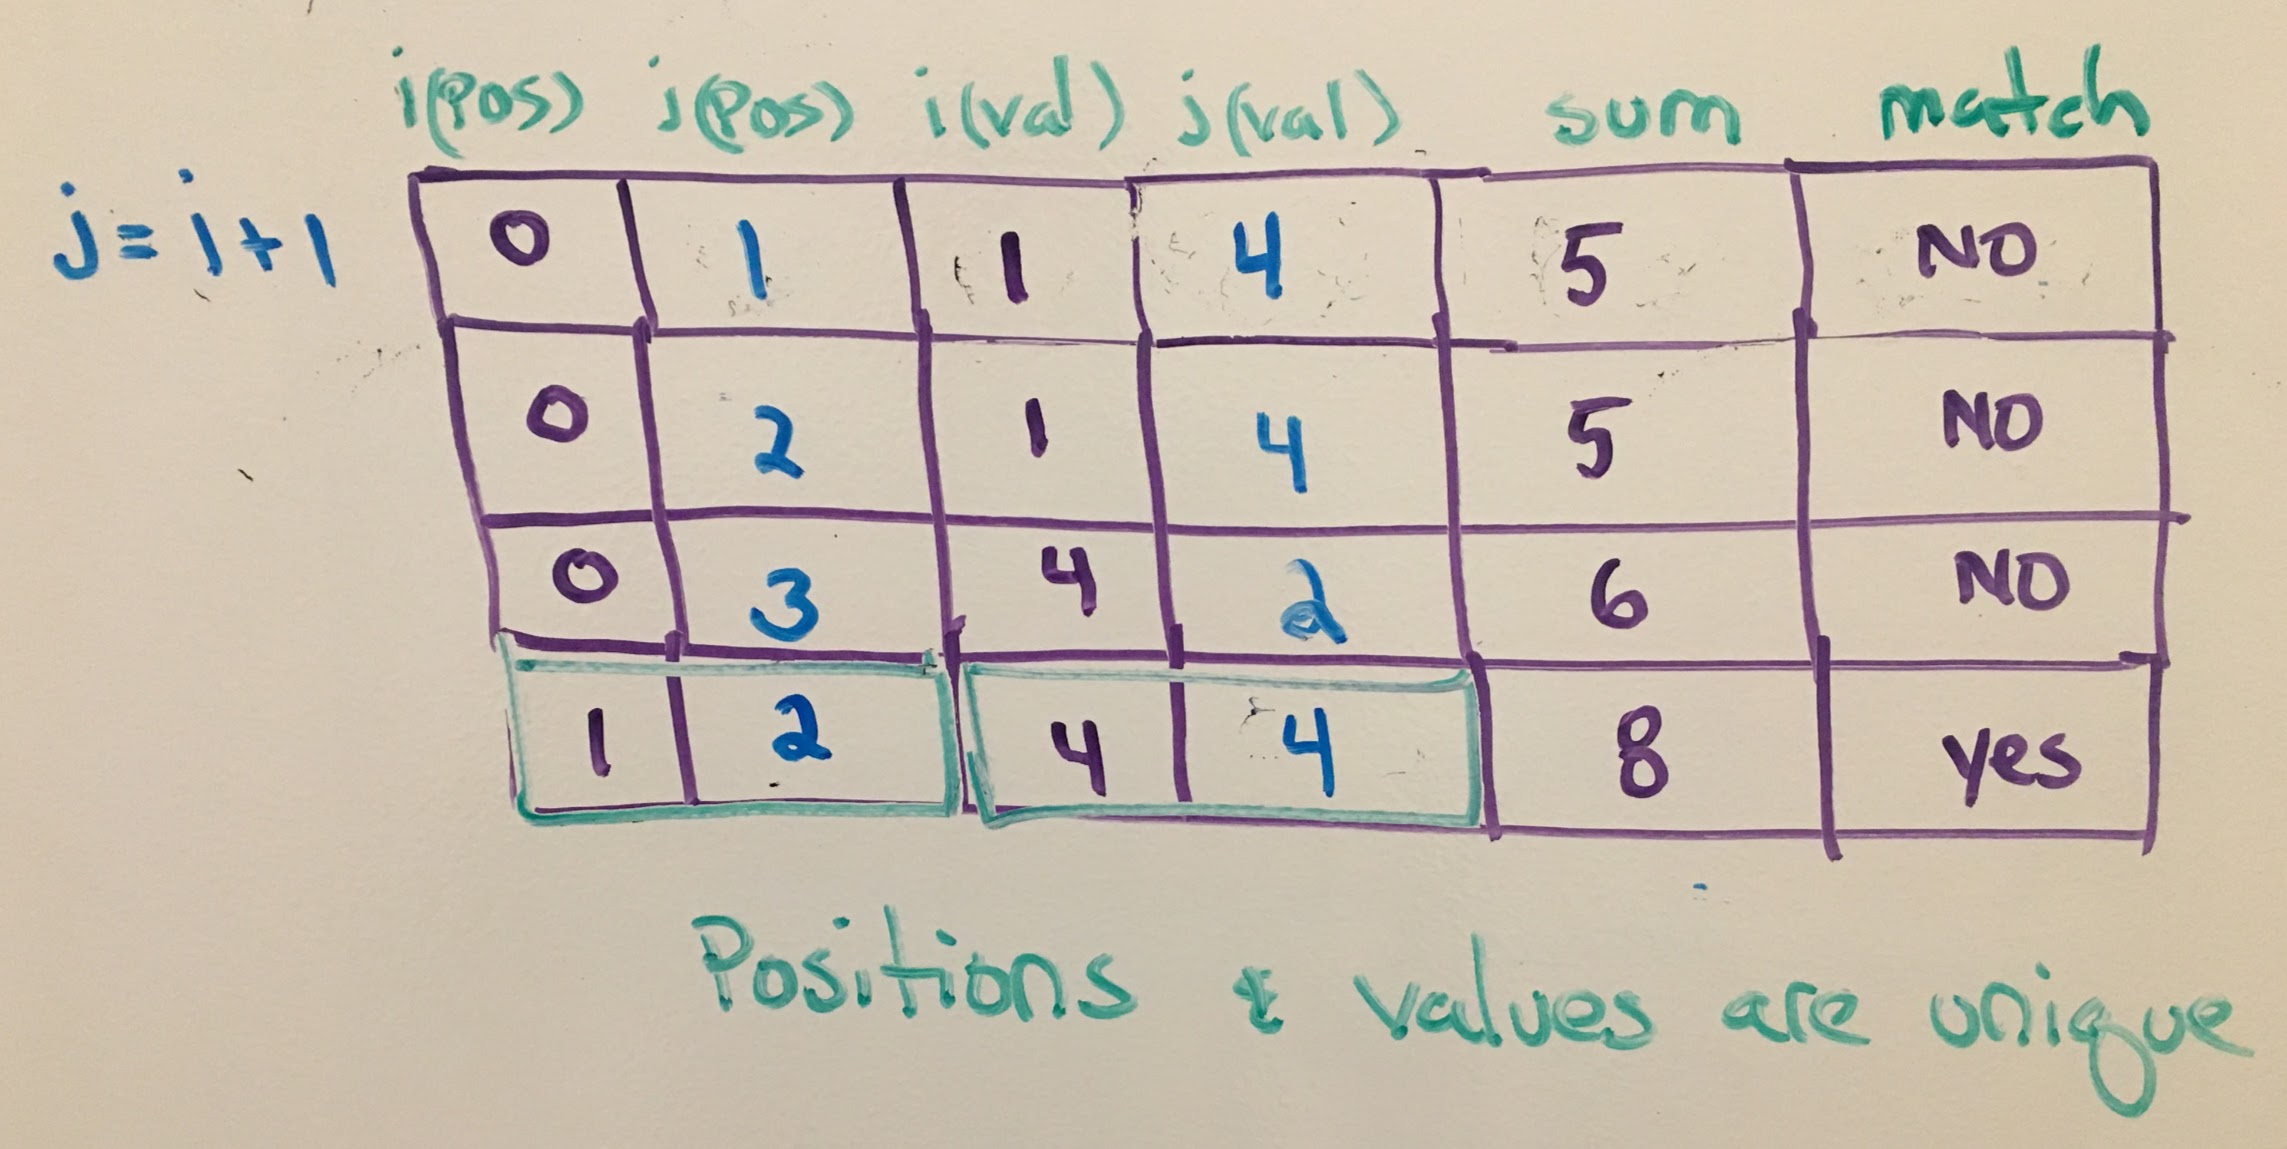 i(Pos) j(Pos) i(val) j(val) sum match
j = i + 1
0 1 1 4 5 NO
0 2 1 4 5 NO
0 3 4 2 6 NO
1 2 4 4 8 yes
Positions & values are unique